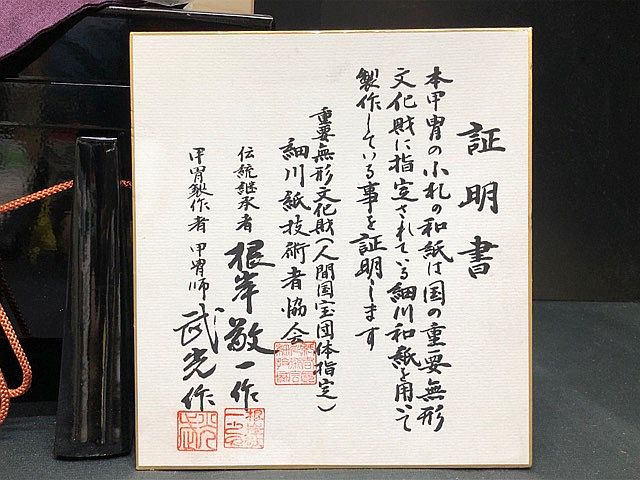 証明書
本甲冑の小札の和紙は国の重要無形
文化財に指定されている細川和紙を用いて
製作している事を証明します
重要無形文化財(人間国宝団体指定)
細川紙技術者協会
伝統継承者 根岸敬一作
甲冑製作者 甲冑師 武光作